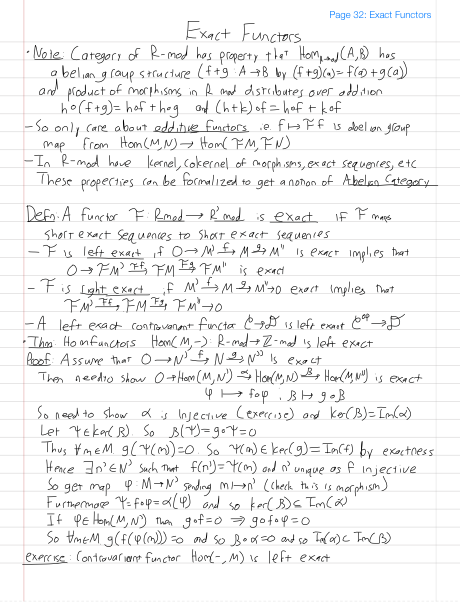 Page 32: Exact Functors
Exact Functors
• Note: Category of R-mod has property that Hom_{R-mod}(A,B) has
abelian group structure (f+g: A→B by (f+g)(a)=f(a)+g(a))
and product of morphisms in R mod distributes over addition
h∘(f+g)=h∘f+h∘g and (h+k)∘f=h∘f+k∘f
- So only care about additive functors i.e. f↦Ff is abelian group
map from Hom(M,N)→Hom(FM,FN)
- In R-mod have kernel, cokernel of morphisms, exact sequences, etc
These properties can be formalized to get a notion of Abelian Category
Defn: A functor F: Rmod→R'mod is exact if F maps
short exact sequences to short exact sequences
- F is left exact if 0→M' –f→ M –g→ M'' is exact implies that
0→FM' –Ff→ FM –Fg→ FM'' is exact
- F is right exact if M' –f→ M –g→ M''→0 exact implies that
FM' –Ff→ FM –Fg→ FM''→0
- A left exact contravariant functor C→D is left exact C^{op}→D
• Thm: Hom functors Hom(M,-): R-mod→Z-mod is left exact
Proof: Assume that 0→N' –f→ N –g→ N'' is exact
Then need to show 0→Hom(M,N') –α→ Hom(M,N) –β→ Hom(M,N'') is exact
φ ↦ f∘φ , β ↦ g∘β
So need to show α is injective (exercise) and ker(β)=Im(α)
Let Ψ∈ker(β). So β(Ψ)=g∘Ψ=0
Thus ∀m∈M g(Ψ(m))=0. So Ψ(m)∈ker(g)=Im(f) by exactness
Hence ∃n'∈N' such that f(n')=Ψ(m) and n' unique as f injective
So get map φ: M→N' sending m↦n' (check this is morphism)
Furthermore Ψ=f∘φ=α(φ) and so ker(β)⊆Im(α)
If φ∈Hom(M,N') then g∘f=0 ⟹ g∘f∘φ=0
So ∀m∈M g(f(φ(m)))=0 and so β∘α=0 and so Im(α)⊂Im(β)
exercise: Contravariant functor Hom(-,M) is left exact